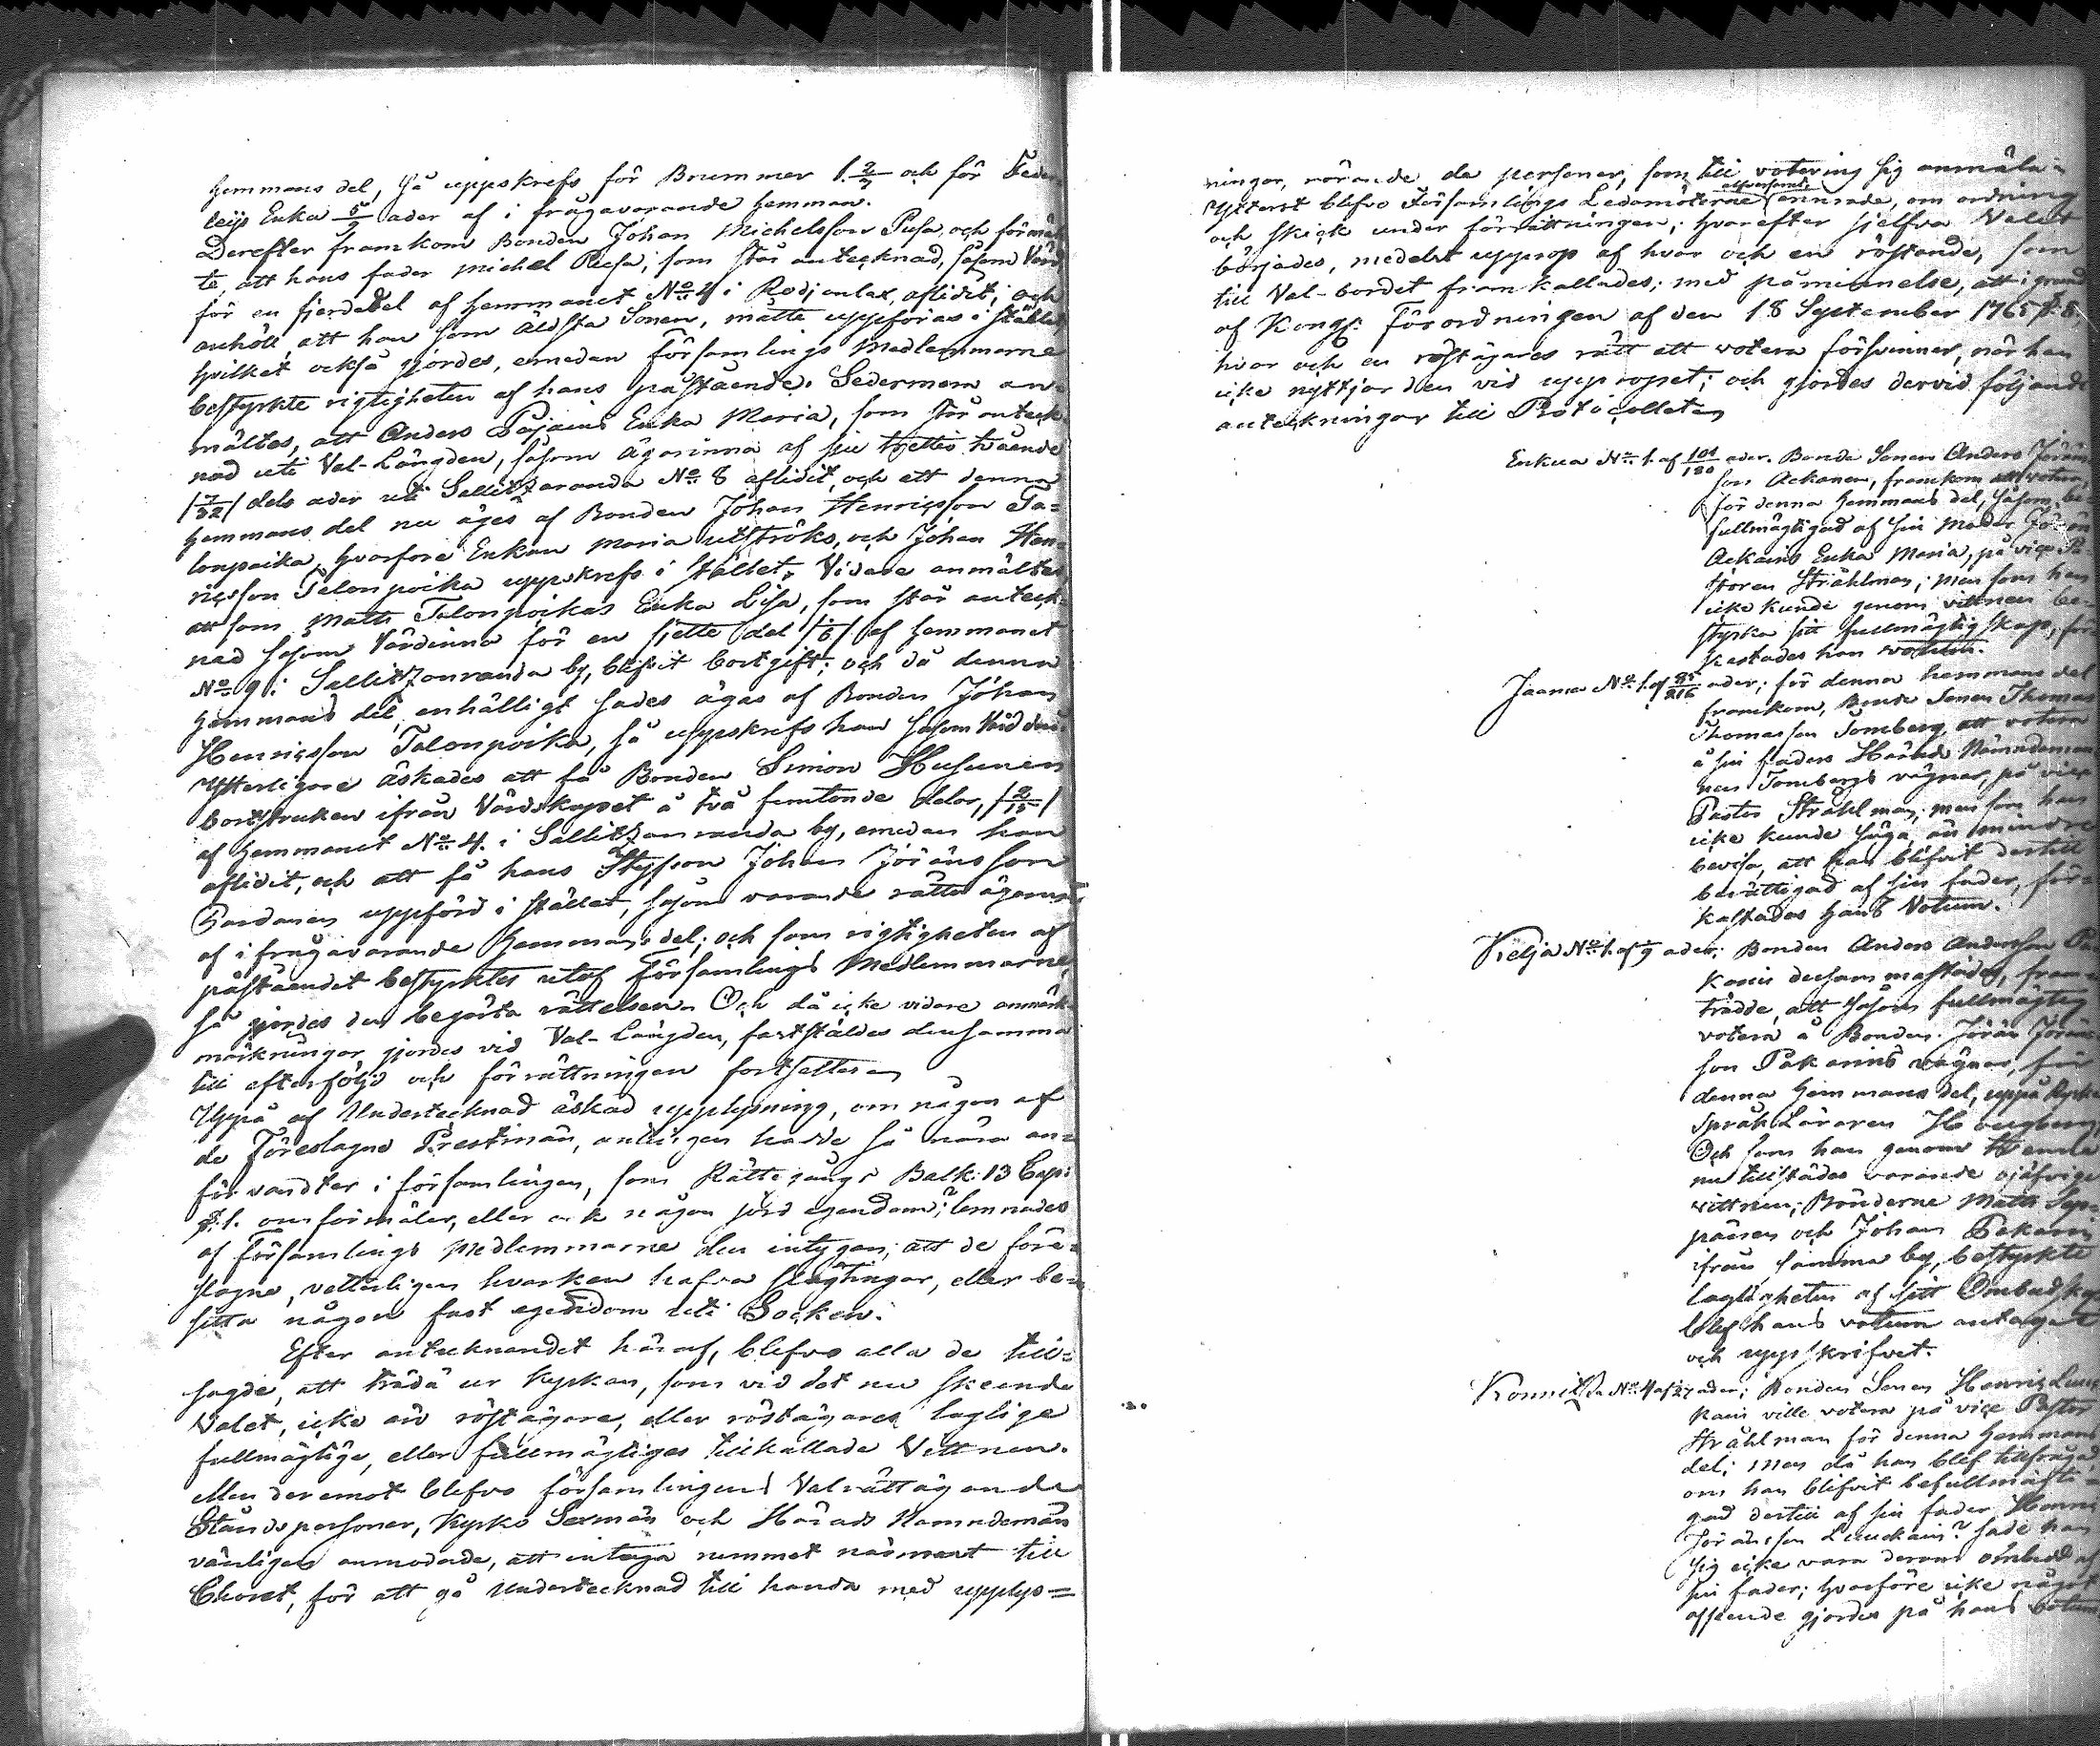 hemmans del, så uppskrefs för Brummer 1. 2/7 och för Feder
leijs Enka 5/7 ader af i frågavarande hemman.
Derefter framkom Bonden Johan Michelsson Pusa, och förmäl
te, att hans fader Michel Pusa, som står antecknad, såsom Värd
för en fjerdedel af hemmanet No 4 i Rodjonlax, aflidit; och
anhöll, att han som äldsta Sonen, måtte uppföras i stället
hvilket också gjordes, emedan församlings Medlemmarne
bestyrkte rigtigheten af hans påstående. Sedermera an-
mältes, att Anders Pajains Enka Maria, som står anteck-
nad uti Val-Längden, såsom ägarinna af siu trettio tvående
/7/32/ dels ader uti Sallitzaranda No 8 aflidit, och att denna
hemmans del nu äges af Bonden Johan Henricsson Ta=
lonpoika, hvarföre Enkan Maria utströks, och Johan Hen-
ricsson Talonpoika uppskrefs i stället. Vidare anmältes
att som Matts Talonpoikas Enka Lisa, som står anteck-
nad såsom Värdinna för en sjette del /1/6/ af hemmanet
No 9 i Sallitzanranda by, blifvit bortgift; och då denna
hemmans del, enhälligt sades ägas af Bonden Johan
Henricsson Talonpoika, så uppskrefs han såsom Värd deraf.
Ytterligare äskades att få Bonden Simon Husunen
bortstruken ifrån Värdskapet å två femtonde delar, /2/15/
af hemmanet No 4. i Sallitzanranda by, emedan han
aflidit, och att få hans Styfson Johan Jöransson
Pardanen uppförd i stället, såsom varande rätte ägaren
af i frågavarande hemmans del; och som rigtigheten af
påståendet bestyrktes utaf Församlings Medlemmarne,
så gjordes den begärta rättelsen. Och då icke vidare anmärk-
märkningar gjordes vid Val-Längden, fastställdes densamma
till efterföljd och förrättningen fortsattes
Uppå af Undertecknad äskad upplysning, om någon af
de Föreslagne Prestmän, antingen hade så nära an=
förvandter i församlingen, som Rättegångs Balk: 13 Cap:
§. 1. omförmäler, eller ock någon jord egendom? lemnades
af församlings Medlemmarne den intygan; att de före=
slagne, vetterligen hvarken hafva slägtingar, eller be-
sitta någon fast egendom uti Socken.
Efter antecknandet häraf, blefvo alla de till=
sagde, att träda ur Kyrkan, som vid det nu skeende
Valet, icke äro röstägare, eller röstägares laglige
fullmägtige, eller fullmägtiges tillkallade Vittnen.
Men deremot blefvo församlingens Valrättägande
Ståndspersoner, Kyrko Sexmän och Härads Nämndemän
vänligen anmodade, att intaga rummet närmast till
Choret, för att gå Undertecknad till handa med upplys=
ningar, rörande de personer, som till votering sig anmäla
allvarsamt
Ytterst blefvo Församlings Ledamöterne ännade, om ordning
och skick under förrättningen; hvarefter sjelfva Valet
börjades, medelst upprop af hvar och en röstande, som
till Val-bordet framkallades; med påminnelse, att i grund
af Kongl: Förordningen af den 18 September 1765 §. 8,
hvar och en röstägares rätt att votera försvinner, när han
icke nyttjar den vid uppropet; och gjordes dervid följande
anteckningar till Protocollet
Enkua No 1. af 101/180 ader. Bonde Sonen Anders Jörans
son Ackanen, framkom att votera
för denna hemmans del, såsom be-
fullmägtigad af sin Moder Jöran
Ackains Enka Maria, på vice Pa
storen Stråhlman; men som han
icke kunde genom vittnen be-
styrka sitt fullmägtigskap, för
kastades han votum.
Jaama No 1. af 85/216 ader; för denna hemmans del
framkom, Bonde Sonen Thomas
Thomasson Tomberg, att votera
å sin faders Härads Nämndeman
nen Tombergs vägnar, på vice
Pastor Stråhlman; men som han
icke kunde säga än mindre
bevisa, att han blifvit dertill
berättigad af sin fader, för-
kastades hans Votum.
Kelja No 1. af 1/9 ader; Bonden Anders Andersson
konin dersammastädes, fram-
trädde, att såsom fullmägtig
votera å Bonden Jöran Jörans
son Pakarins vägnar, för
denna hemmans del, uppå Ryska
Språk Läraren Hougberg;
Och som han genom tvenne
nu tillstädes varande ojäfvige
vittnen; Bönderne Matts Sep-
pänen och Johan Pakarin
ifrån samma by, bestyrkte
lagligheten af sitt Ombudskap
blef hans votum antaget
och uppskrifvet.
Konnitza No 4 af 1/27 ader; Bonden Sonen Henric Luu
kain ville votera på vice Pastor
Stråhlman för denna hemmans
del; men då han blef tillfrågad
om han blifvit befullmägti-
gad dertill af sin fader Henric
Jöransson Luuckain? sade han
sig icke vara derom ombedd af
sin fader; hvarföre icke något
afseende gjordes på hans votum